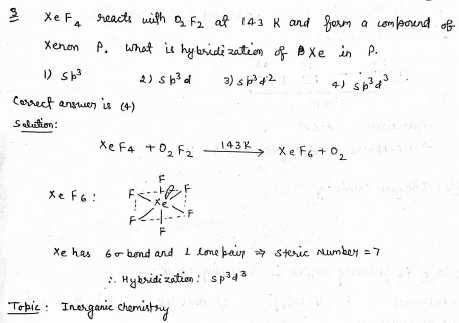 Q XeF4 reacts with O2F2 at 143 K and form a compound of
Xenon P. what is hybridization of Xe in P.
1) sp³ 2) sp³d 3) sp³d² 4) sp³d³
Correct answer is (4)
Solution:
XeF4 + O2F2 143K → XeF6 + O2
XeF6 :
F
F F
Xe
F F
F
Xe has 6 σ bond and 1 lone pair ⇒ steric Number = 7
∴ Hybridization : sp³d³
Topic : Inorganic chemistry